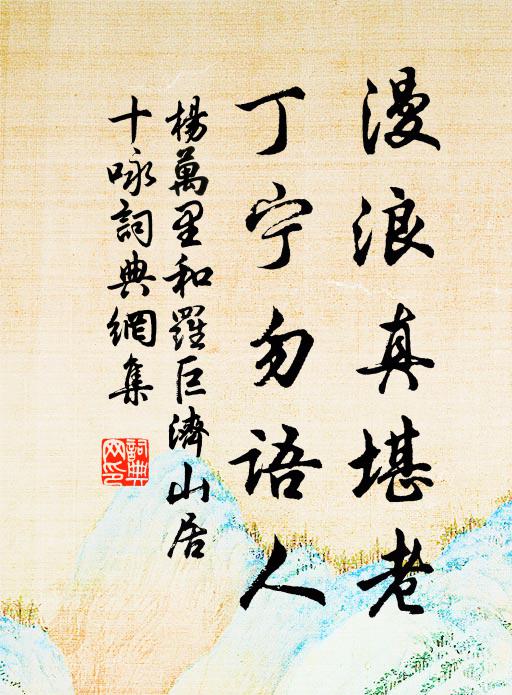 漫浪真堪老
丁宁勿语人
楊萬里和羅巨濟山居
十咏詞典網集
詞典
网印